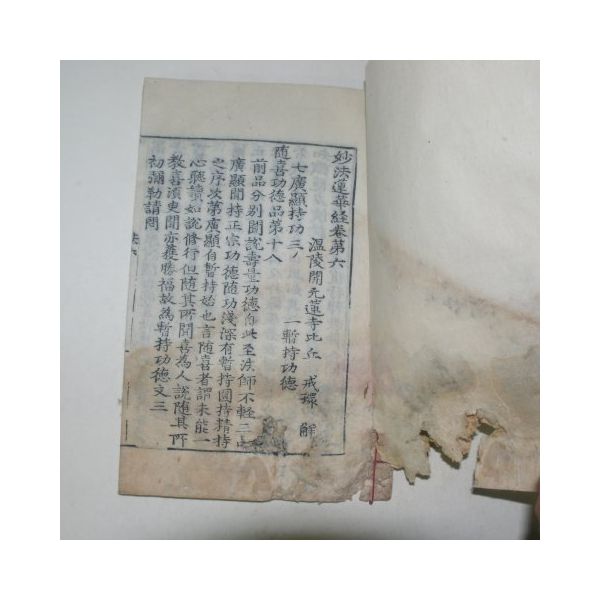 妙法蓮華経卷第六
温陵開元蓮寺比丘 戒環 解
七廣顯持功三ノ 一暫持功德
随喜功德品第十八
前品分别聞說壽量功德自此至法師不輕三品
廣顯聞持正宗功德随功淺深有暫持圓持精持
之序次第廣顯自暫持始也言随喜者謂未能一
心聽讀如說修行但随其所聞喜為人說随其所
教喜須臾聞亦獲勝福故為暫持功德文三
初彌勒請問